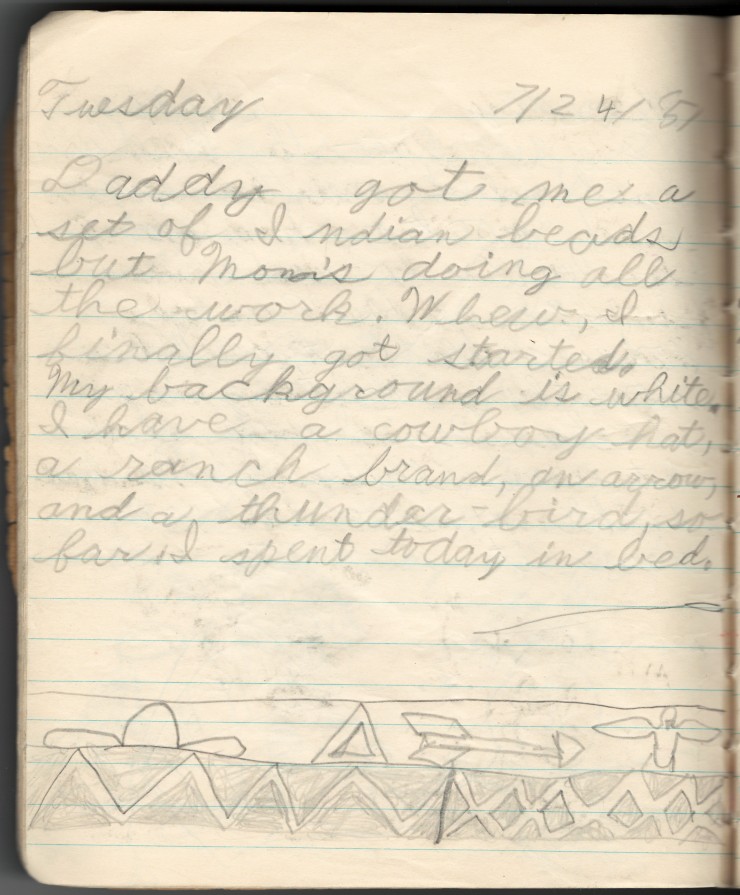 Tuesday 7/24/51
Daddy got me a
set of Indian beads
but Mom's doing all
the work. Whew, I
finally got started.
My background is white.
I have a cowboy hat,
a ranch brand, an arrow,
and a thunder-bird, so
far. I spent today in bed.